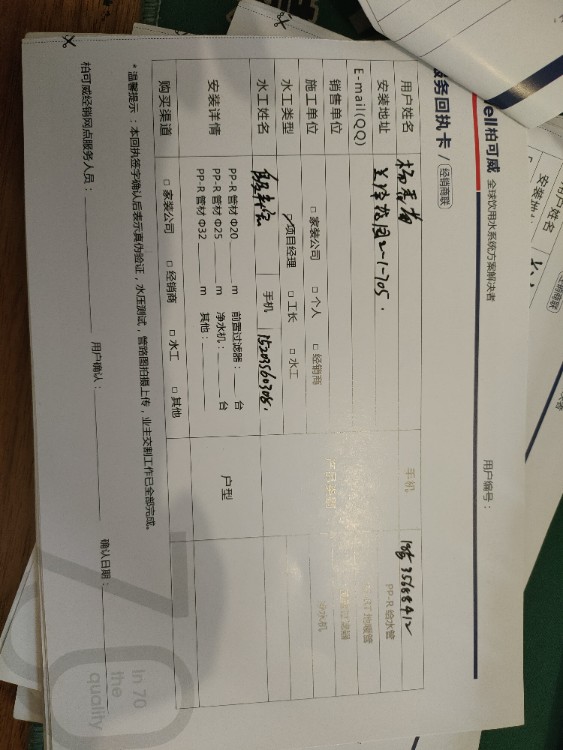 ell柏可威 全球饮用水系统方案解决者
务回执卡 / 经销商联
用户编号：
用户姓名 手机
安装地址 2-1-705. PP-R 给水管
E-mail(QQ)
销售单位
施工单位 □ 家装公司 □ 个人 □ 经销商
水工类型 项目经理 □ 工长 □ 水工 净水机
水工姓名 手机 15203560306.
安装详情 PP-R 管材 Φ20 m 前置过滤器： 台 户型
PP-R 管材 Φ25 m 净水机： 台
PP-R 管材 Φ32 m 其他：
购买渠道 □ 家装公司 □ 经销商 □ 水工 □ 其他
* 温馨提示：本回执签字确认后表示真伪验证，水压测试，管路图拍摄上传，业主交割工作已全部完成。
柏可威经销网点服务人员： 用户确认： 确认日期：
In 70
the
quality
用户姓名
安装地